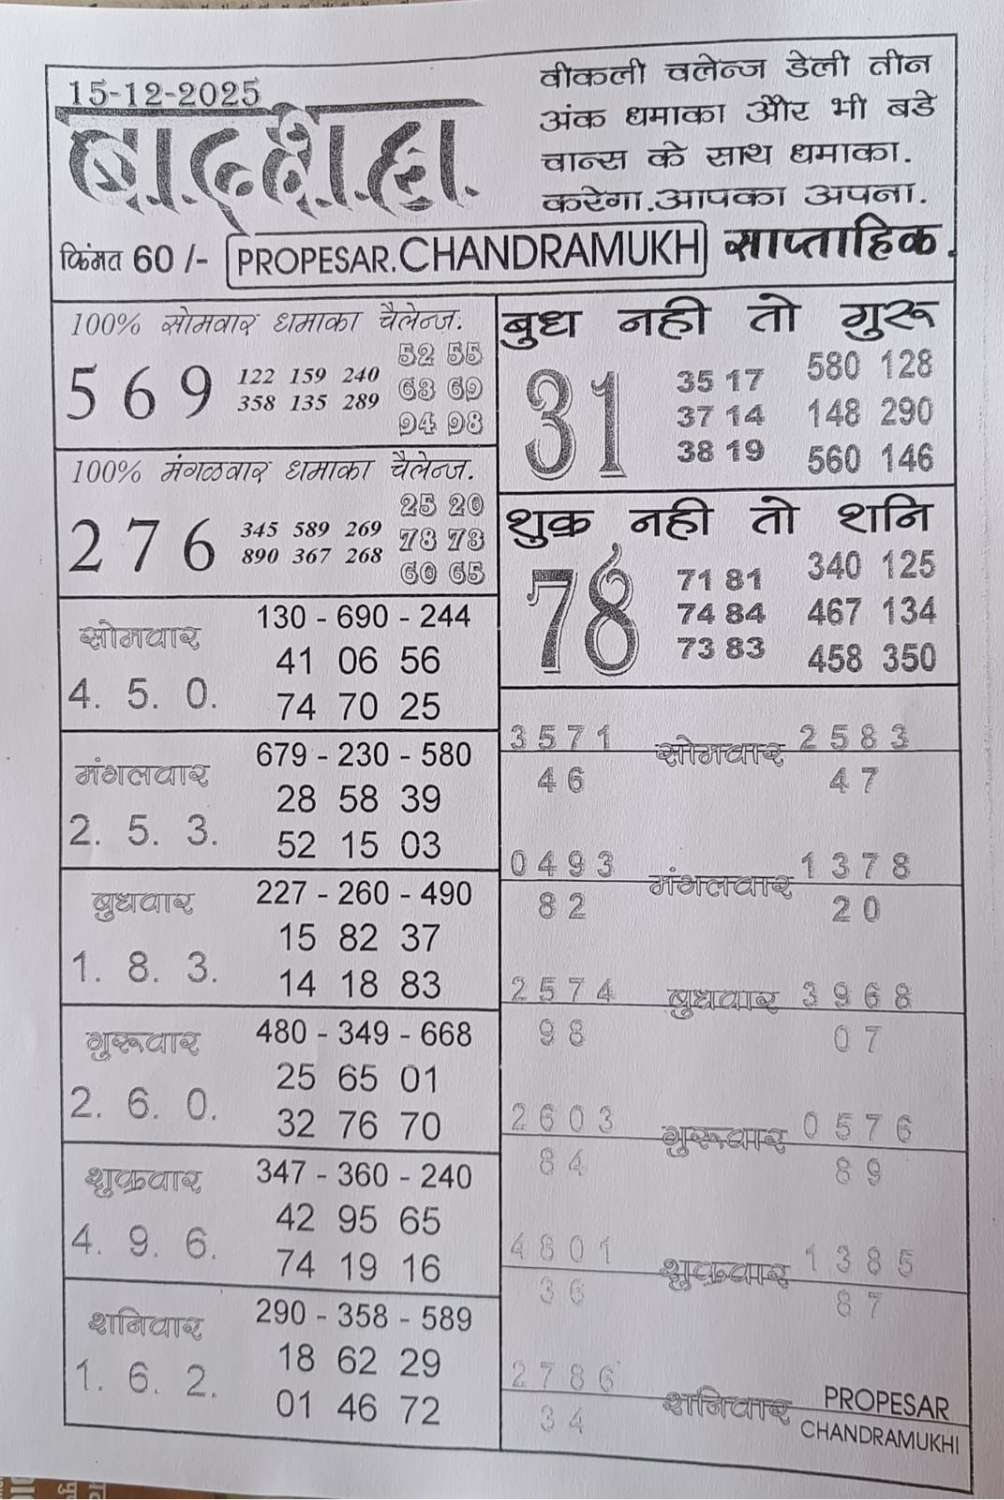 15-12-2025
बादशाह
वीकली चलेन्ज डेली तीन
अंक धमाका और भी बडे
चान्स के साथ धमाका.
करेगा.आपका अपना.
किंमत 60 /- PROPESAR.CHANDRAMUKHI साप्ताहिक.
100% सोमवार धमाका चैलेन्ज.
5 6 9
122 159 240
358 135 289
52 55
63 69
94 98
100% मंगळवार धमाका चैलेन्ज.
2 7 6
345 589 269
890 367 268
25 20
78 73
60 65
सोमवार
4. 5. 0.
130 - 690 - 244
41 06 56
74 70 25
मंगलवार
2. 5. 3.
679 - 230 - 580
28 58 39
52 15 03
बुधवार
1. 8. 3.
227 - 260 - 490
15 82 37
14 18 83
गुरूवार
2. 6. 0.
480 - 349 - 668
25 65 01
32 76 70
शुक्रवार
4. 9. 6.
347 - 360 - 240
42 95 65
74 19 16
शनिवार
1. 6. 2.
290 - 358 - 589
18 62 29
01 46 72
बुध नही तो गुरू
31
35 17
37 14
38 19
580 128
148 290
560 146
शुक्र नही तो शनि
78
71 81
74 84
73 83
340 125
467 134
458 350
3 5 7 1 सोमवार 2 5 8 3
4 6 4 7
0 4 9 3 मंगलवार 1 3 7 8
8 2 2 0
2 5 7 4 बुधवार 3 9 6 8
9 8 0 7
2 6 0 3 गुरूवार 0 5 7 6
8 4 8 9
4 8 0 1 शुक्रवार 1 3 8 5
3 6 8 7
2 7 8 6 शनिवार PROPESAR
3 4 CHANDRAMUKHI